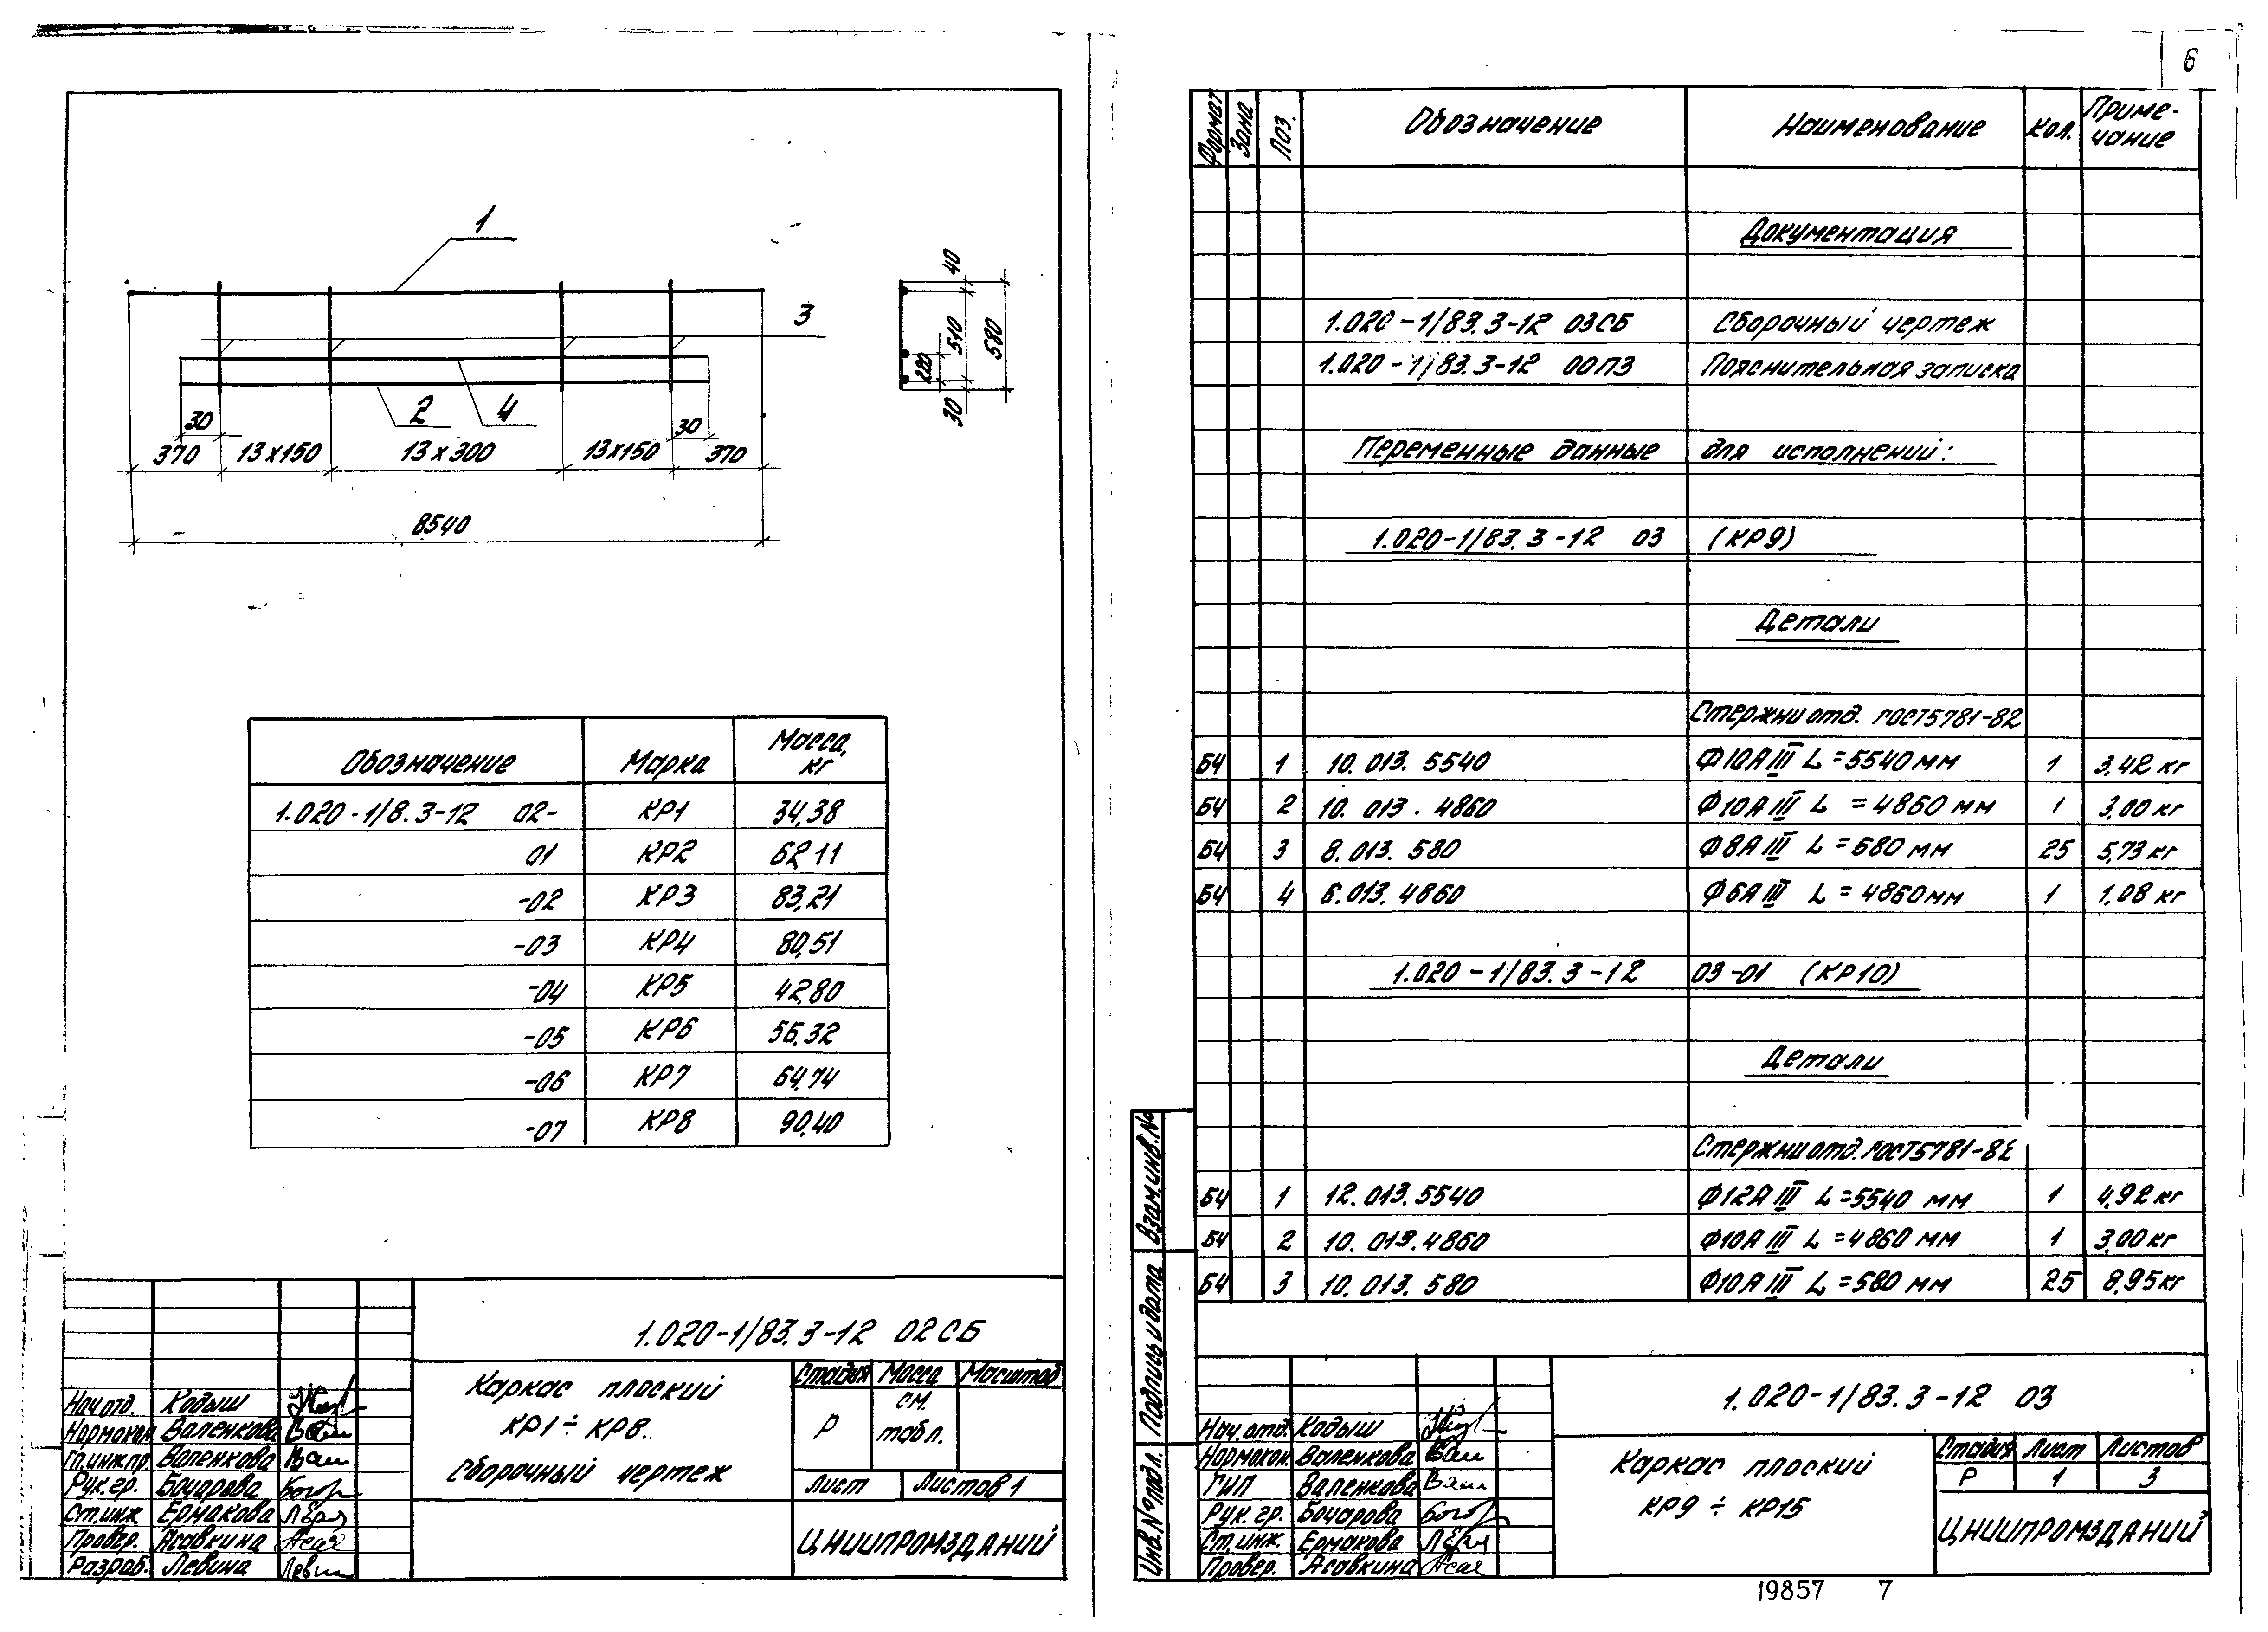 6
1
3
2
4
30
30
370
13×150
13×300
13×150
370
8540
40
510
580
220
30
Обозначение Марка Масса, кг
1.020-1/8.3-12 02- КР1 34,38
01 КР2 62,11
-02 КР3 83,21
-03 КР4 80,51
-04 КР5 42,80
-05 КР6 56,32
-06 КР7 64,74
-07 КР8 90,40
1.020-1/83.3-12 02СБ
Каркас плоский
КР1÷КР8.
Сборочный чертеж
Стадия Масса Масштаб
Р см. табл.
Лист Листов 1
ЦНИИПРОМЗДАНИЙ
Нач.отд. Кодыш
Нормокон. Валенкова
Гл.инж.пр. Валенкова
Рук.гр. Бочарова
Ст.инж. Ермакова
Провер. Асавкина
Разраб. Левина
Формат Зона Поз. Обозначение Наименование Кол. Приме-
чание
Документация
1.020-1/83.3-12 03СБ Сборочный чертеж
1.020-1/83.3-12 00ПЗ Пояснительная записка
Переменные данные для исполнений:
1.020-1/83.3-12 03 (КР9)
Детали
Стержни отд. ГОСТ5781-82
БЧ 1 10.013.5540 Ф10АIII L=5540мм 1 3,42 кг
БЧ 2 10.013.4860 Ф10АIII L=4860 мм 1 3,00 кг
БЧ 3 8.013.580 Ф8АIII L=580 мм 25 5,73 кг
БЧ 4 6.013.4860 Ф6АIII L=4860мм 1 1,08 кг
1.020-1/83.3-12 03-01 (КР10)
Детали
Стержни отд. ГОСТ5781-82
БЧ 1 12.013.5540 Ф12АIII L=5540 мм 1 4,92 кг
БЧ 2 10.013.4860 Ф10АIII L=4860 мм 1 3,00 кг
БЧ 3 10.013.580 Ф10АIII L=580 мм 25 8,95кг
Взам.инв.№
Подпись и дата
Инв.№ подл.
1.020-1/83.3-12 03
Каркас плоский
КР9÷КР15
Стадия Лист Листов
Р 1 3
ЦНИИПРОМЗДАНИЙ
Нач.отд. Кодыш
Нормокон. Валенкова
ГИП Валенкова
Рук.гр. Бочарова
Ст.инж. Ермакова
Провер. Асавкина
19857 7